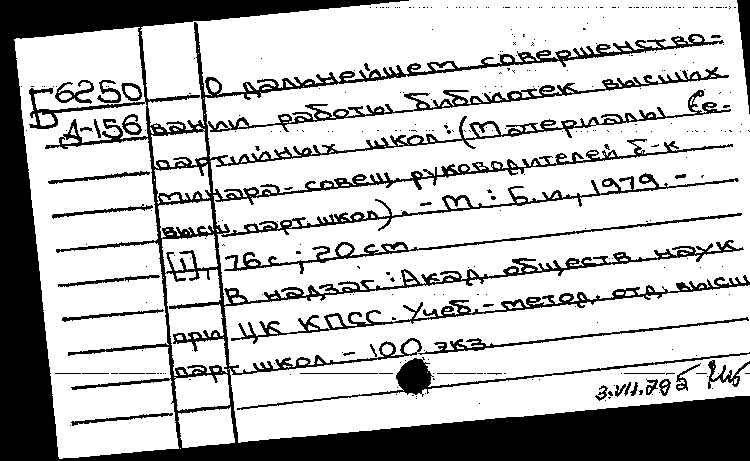 Б6250 О дальнейшем совершенство-
Д-156 вании работы библиотек высших
партийных школ: (Материалы Се-
минара-совещ. руководителей б-к
высш. парт. школ). - М.: Б.и., 1979. -
[1], 76 с ; 20 см.
В надзаг.: Акад. обществ. наук
при ЦК КПСС. Учеб.-метод. отд. высш
парт. школ. - 100 экз.
3.VII.79